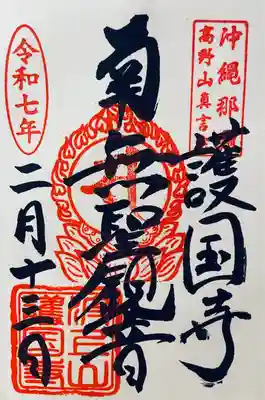 沖縄那
高野山真言
護国寺
南無聖観音
令和七年
二月十三日